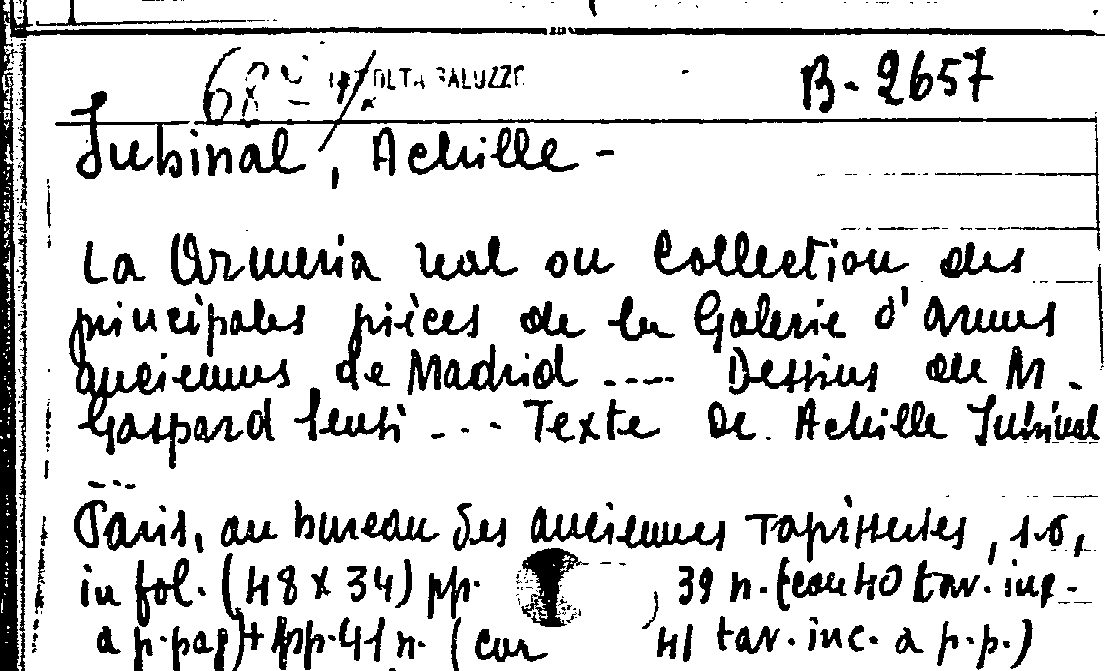 B. 2657
Jubinal, Achille -
La Armeria real ou Collection des
principales pièces de la Galerie d'Armes
anciennes de Madrid .... Dessins de M.
Gaspard Sensi ... Texte De. Achille Jubinal
...
Paris, au bureau des anciennes Tapisseries, s.d,
in fol. (48 x 34) pp. 39 n. (con 40 tav. inc.
a p. pag) + pp. 41 n. ( con 41 tav. inc. a p.p.)